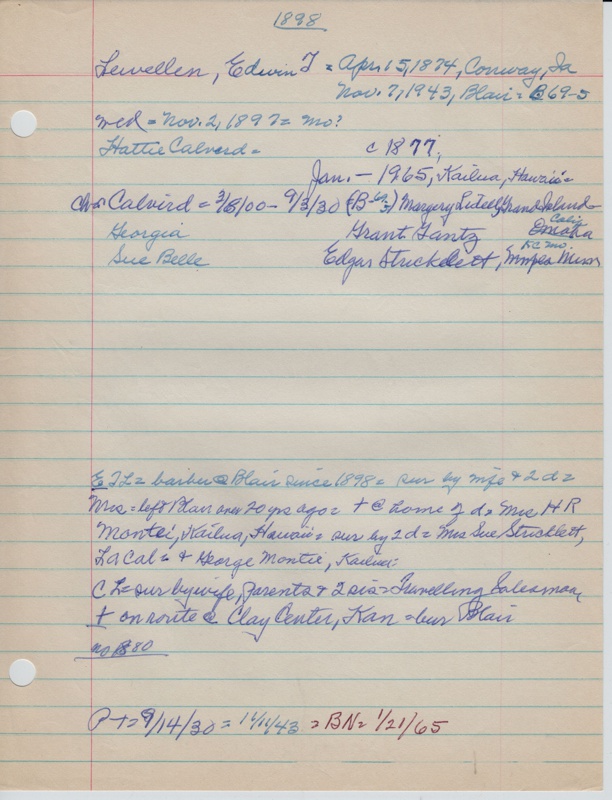 1898
Lewellen, Edwin T = Apr. 15, 1874, Conway, Ia
Nov. 7, 1943, Blair = B69-5
wed = Nov. 2, 1897 = Mo?
Hattie Calverd = c 1877,
Jan. - 1965, Kailua, Hawaii =
Ch = Calvird = 3/8/00 - 9/3/30 (B- ) Margery Lutell, Grand Island =
Georgia Grant Gantz Omaha Calif
Sue Belle Edgar Strickelett, Mnpls Minn KC Mo.
ETL = barber @ Blair since 1898 = sur by wife & 2 d =
Mrs = left Blair over 20 yrs ago = + @ home of d = Mrs H R
Montei, Kailua, Hawaii = sur by 2 d = Mrs Sue Stricklett,
La Cal = & George Montie, Kailua:
C L = sur by wife, parents & 2 sis = Travelling Salesman,
+ on route @ Clay Center, Kan = bur Blair
no B80
P T = 9/14/30 = 11/11/43 = BN = 1/21/65